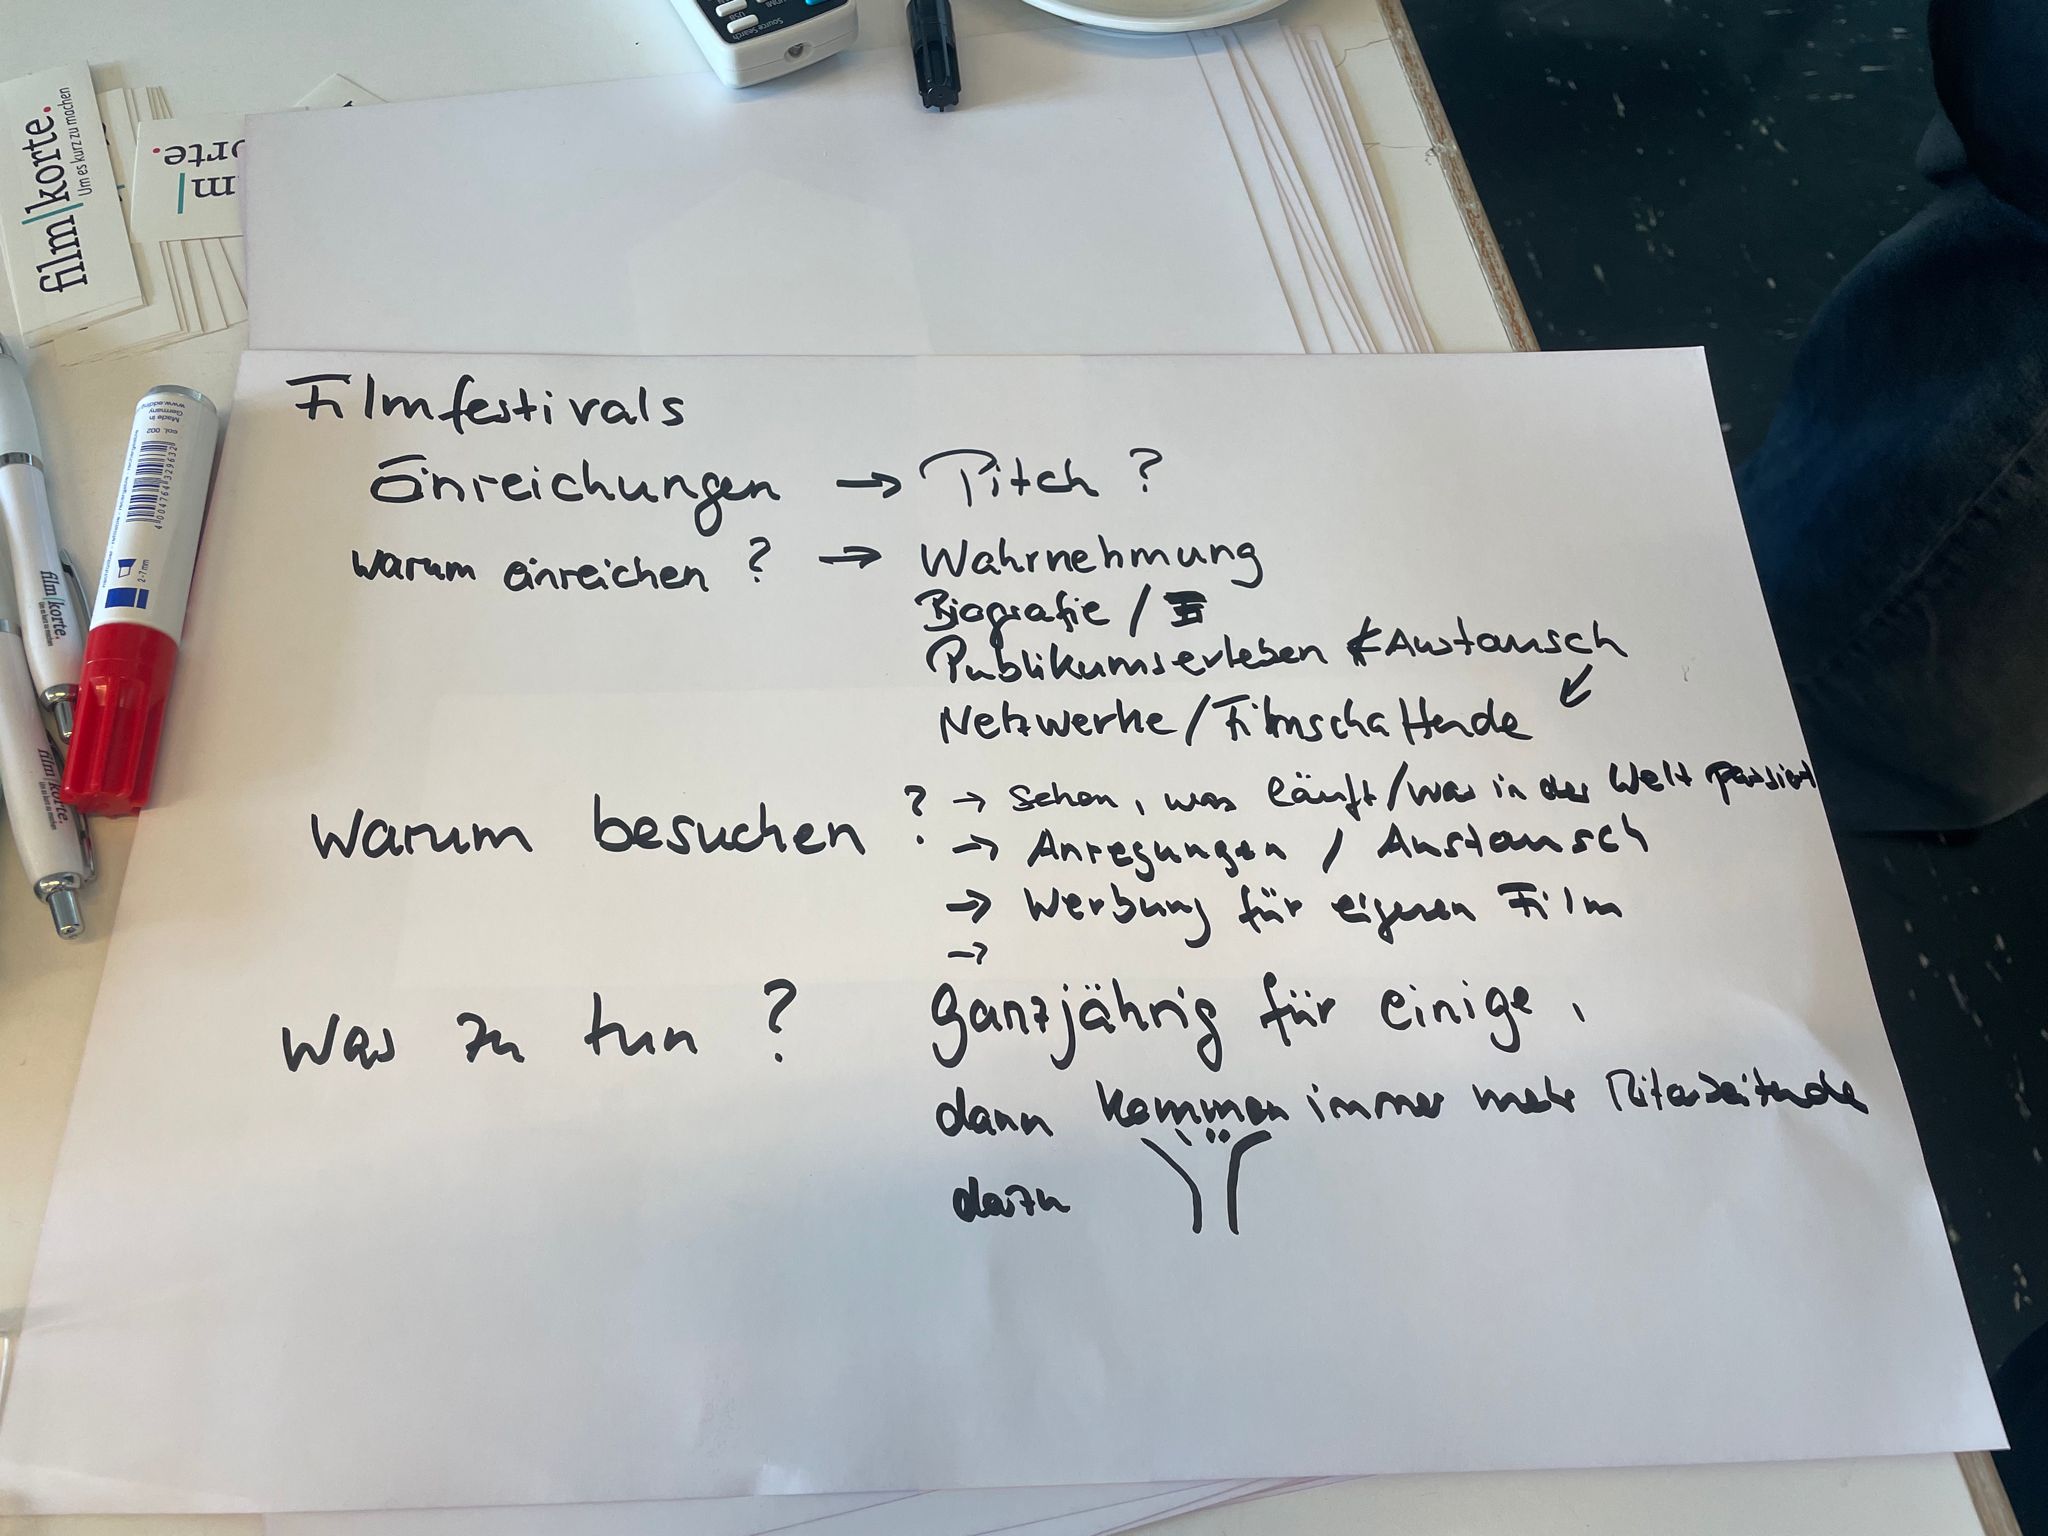 film|korte.
Um es kurz zu machen
Source Search
USB
Made in
Germany
www.edding
col. 002
4 004764 329632
2-7 mm
film|korte.
Um es kurz zu machen
film|korte.
Filmfestivals
Einreichungen → Pitch ?
warum einreichen ? → Wahrnehmung
Biografie /
Publikumserleben Austausch
Netzwerke / Filmschaffende
Warum besuchen ? → Sehen, was läuft / was in der Welt passiert
→ Anregungen / Austausch
→ Werbung für eigenen Film
→
Was zu tun ? ganzjährig für einige,
dann kommen immer mehr Mitarbeitende
dazu